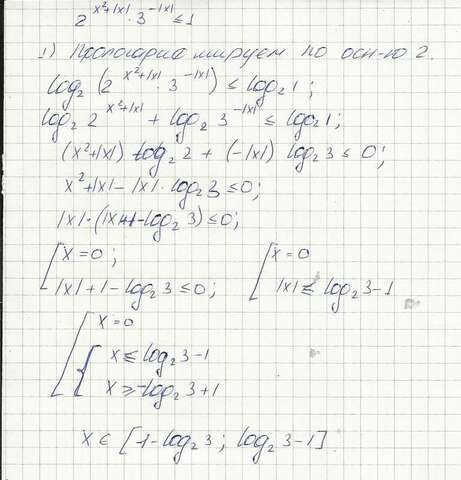 2^(x²+|x|) · 3^(-|x|) ≤ 1
1) Прологарифмируем по осн-ю 2.
log₂ (2^(x²+|x|) · 3^(-|x|)) ≤ log₂ 1;
log₂ 2^(x²+|x|) + log₂ 3^(-|x|) ≤ log₂ 1;
(x²+|x|) log₂ 2 + (-|x|) log₂ 3 ≤ 0;
x² + |x| - |x| · log₂ 3 ≤ 0;
|x| · (|x|+1-log₂ 3) ≤ 0;
[ x = 0;
|x| + 1 - log₂ 3 ≤ 0;
[ x = 0
|x| ≤ log₂ 3 - 1
[ x = 0
{ x ≤ log₂ 3 - 1
x ≥ -log₂ 3 + 1
x ∈ [1-log₂ 3; log₂ 3-1]